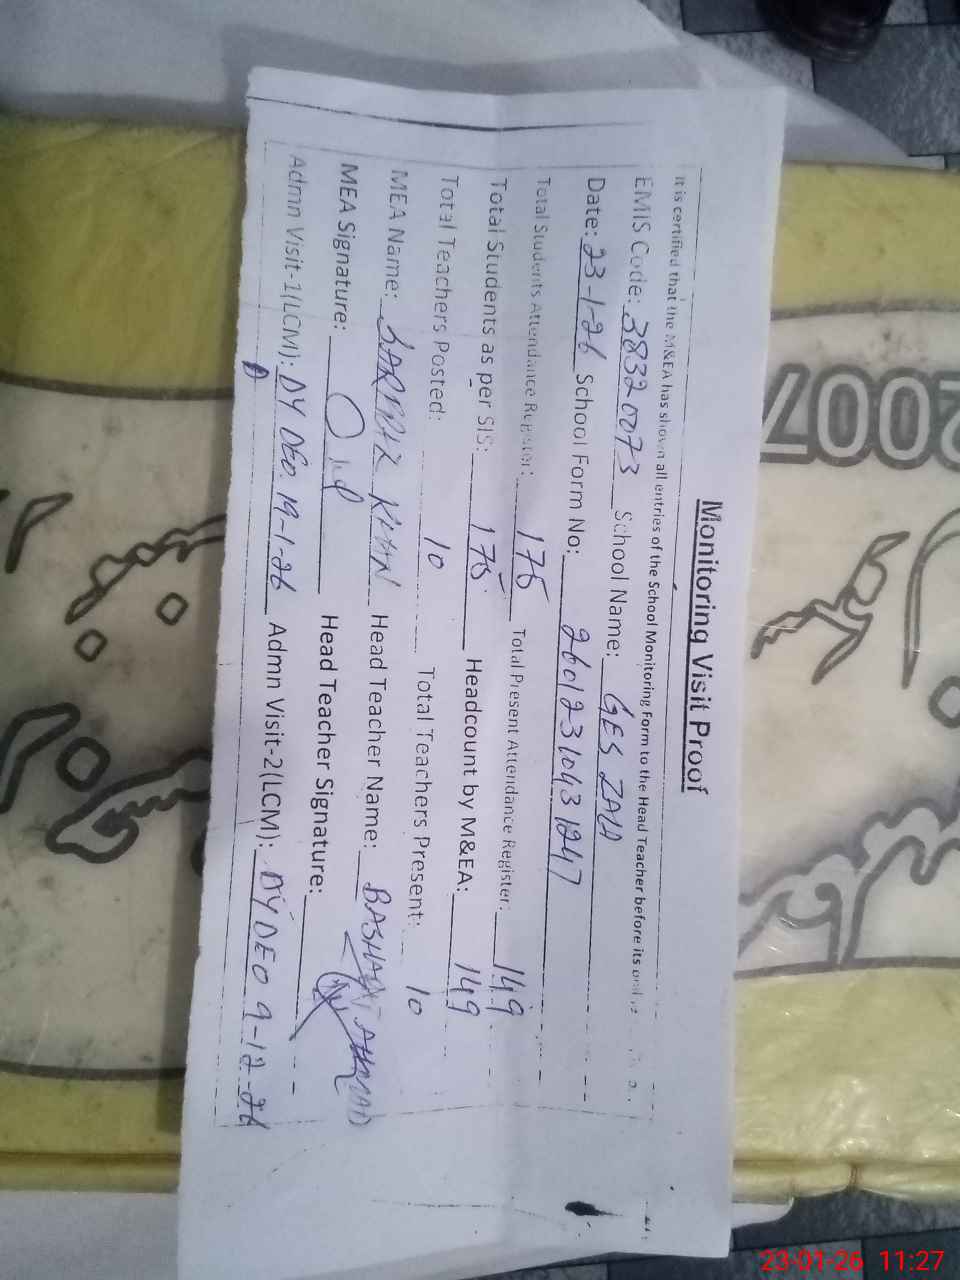 Monitoring Visit Proof
It is certified that the M&EA has shown all entries of the School Monitoring Form to the Head Teacher before its
EMIS Code: 38320073 School Name: GES ZAU
Date: 23-1-26 School Form No: 26012310431247
Total Students Attendance Register: 175 Total Present Attendance Register: 149
Total Students as per SIS: 175 Headcount by M&EA: 149
Total Teachers Posted: 10 Total Teachers Present: 10
MEA Name: KHAN Head Teacher Name: AHMAD
MEA Signature: Head Teacher Signature:
Admn Visit-1(LCM): DY DEO. 19-1-26 Admn Visit-2(LCM): DYDEO 9-12-26
2007
23-01-26 11:27